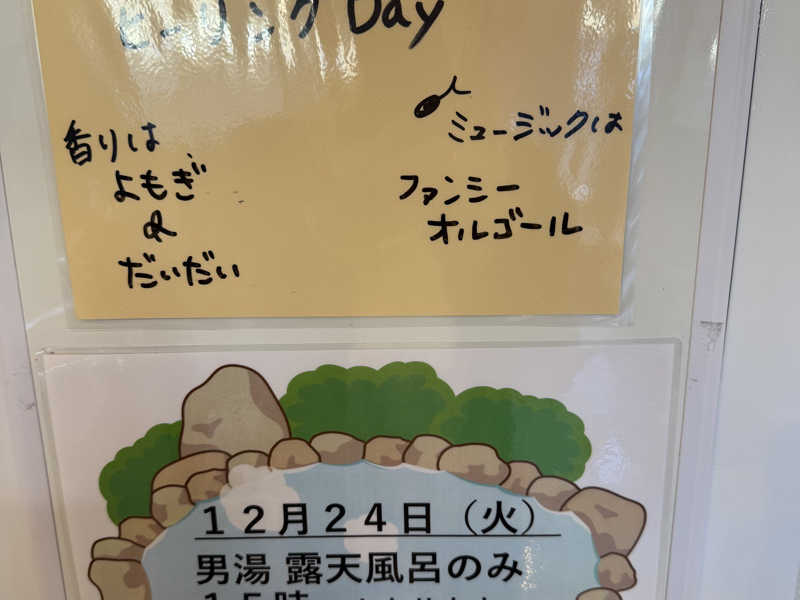 ヒーリング Day
香りは
よもぎ
&
だいだい
ミュージックは
ファンシー
オルゴール
12月24日（火）
男湯 露天風呂のみ
15時